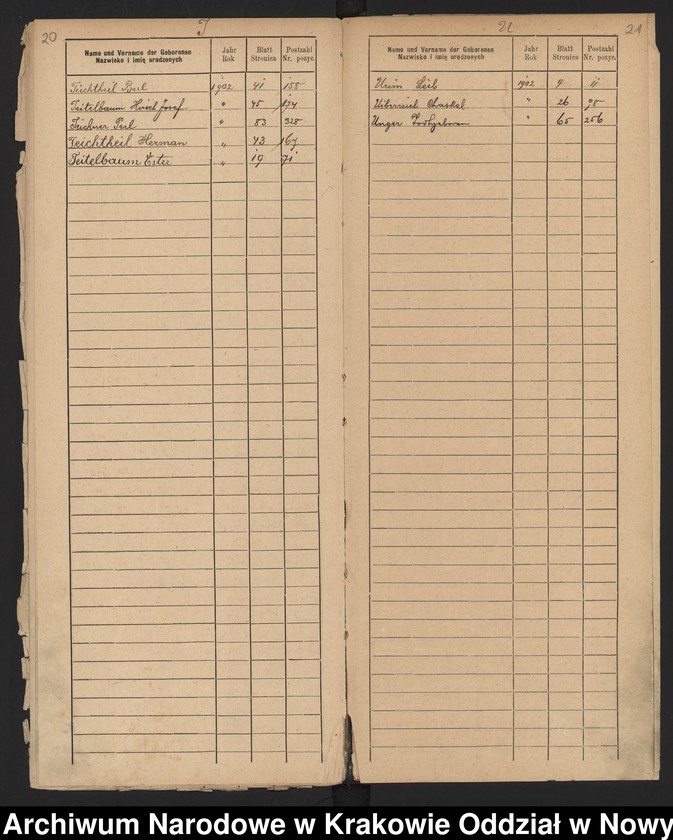 20
T
Name und Vorname der Geborenen
Nazwisko i imię urodzonych
Jahr
Rok
Blatt
Stronica
Postzahl
Nr. pozyc.
Teichtheil Berl 1902 41 155
Teitelbaum Hirsch Josef " 45 174
Teichner Perl " 83 328
Teichtheil Herman " 43 167
Teitelbaum Ester " 19 71
U
21
Name und Vorname der Geborenen
Nazwisko i imię urodzonych
Jahr
Rok
Blatt
Stronica
Postzahl
Nr. pozyc.
Urim Leib 1902 4 11
Uiberreich Chaskel " 26 98
Unger Todtgeboren " 65 256
Archiwum Narodowe w Krakowie Oddział w Nowy